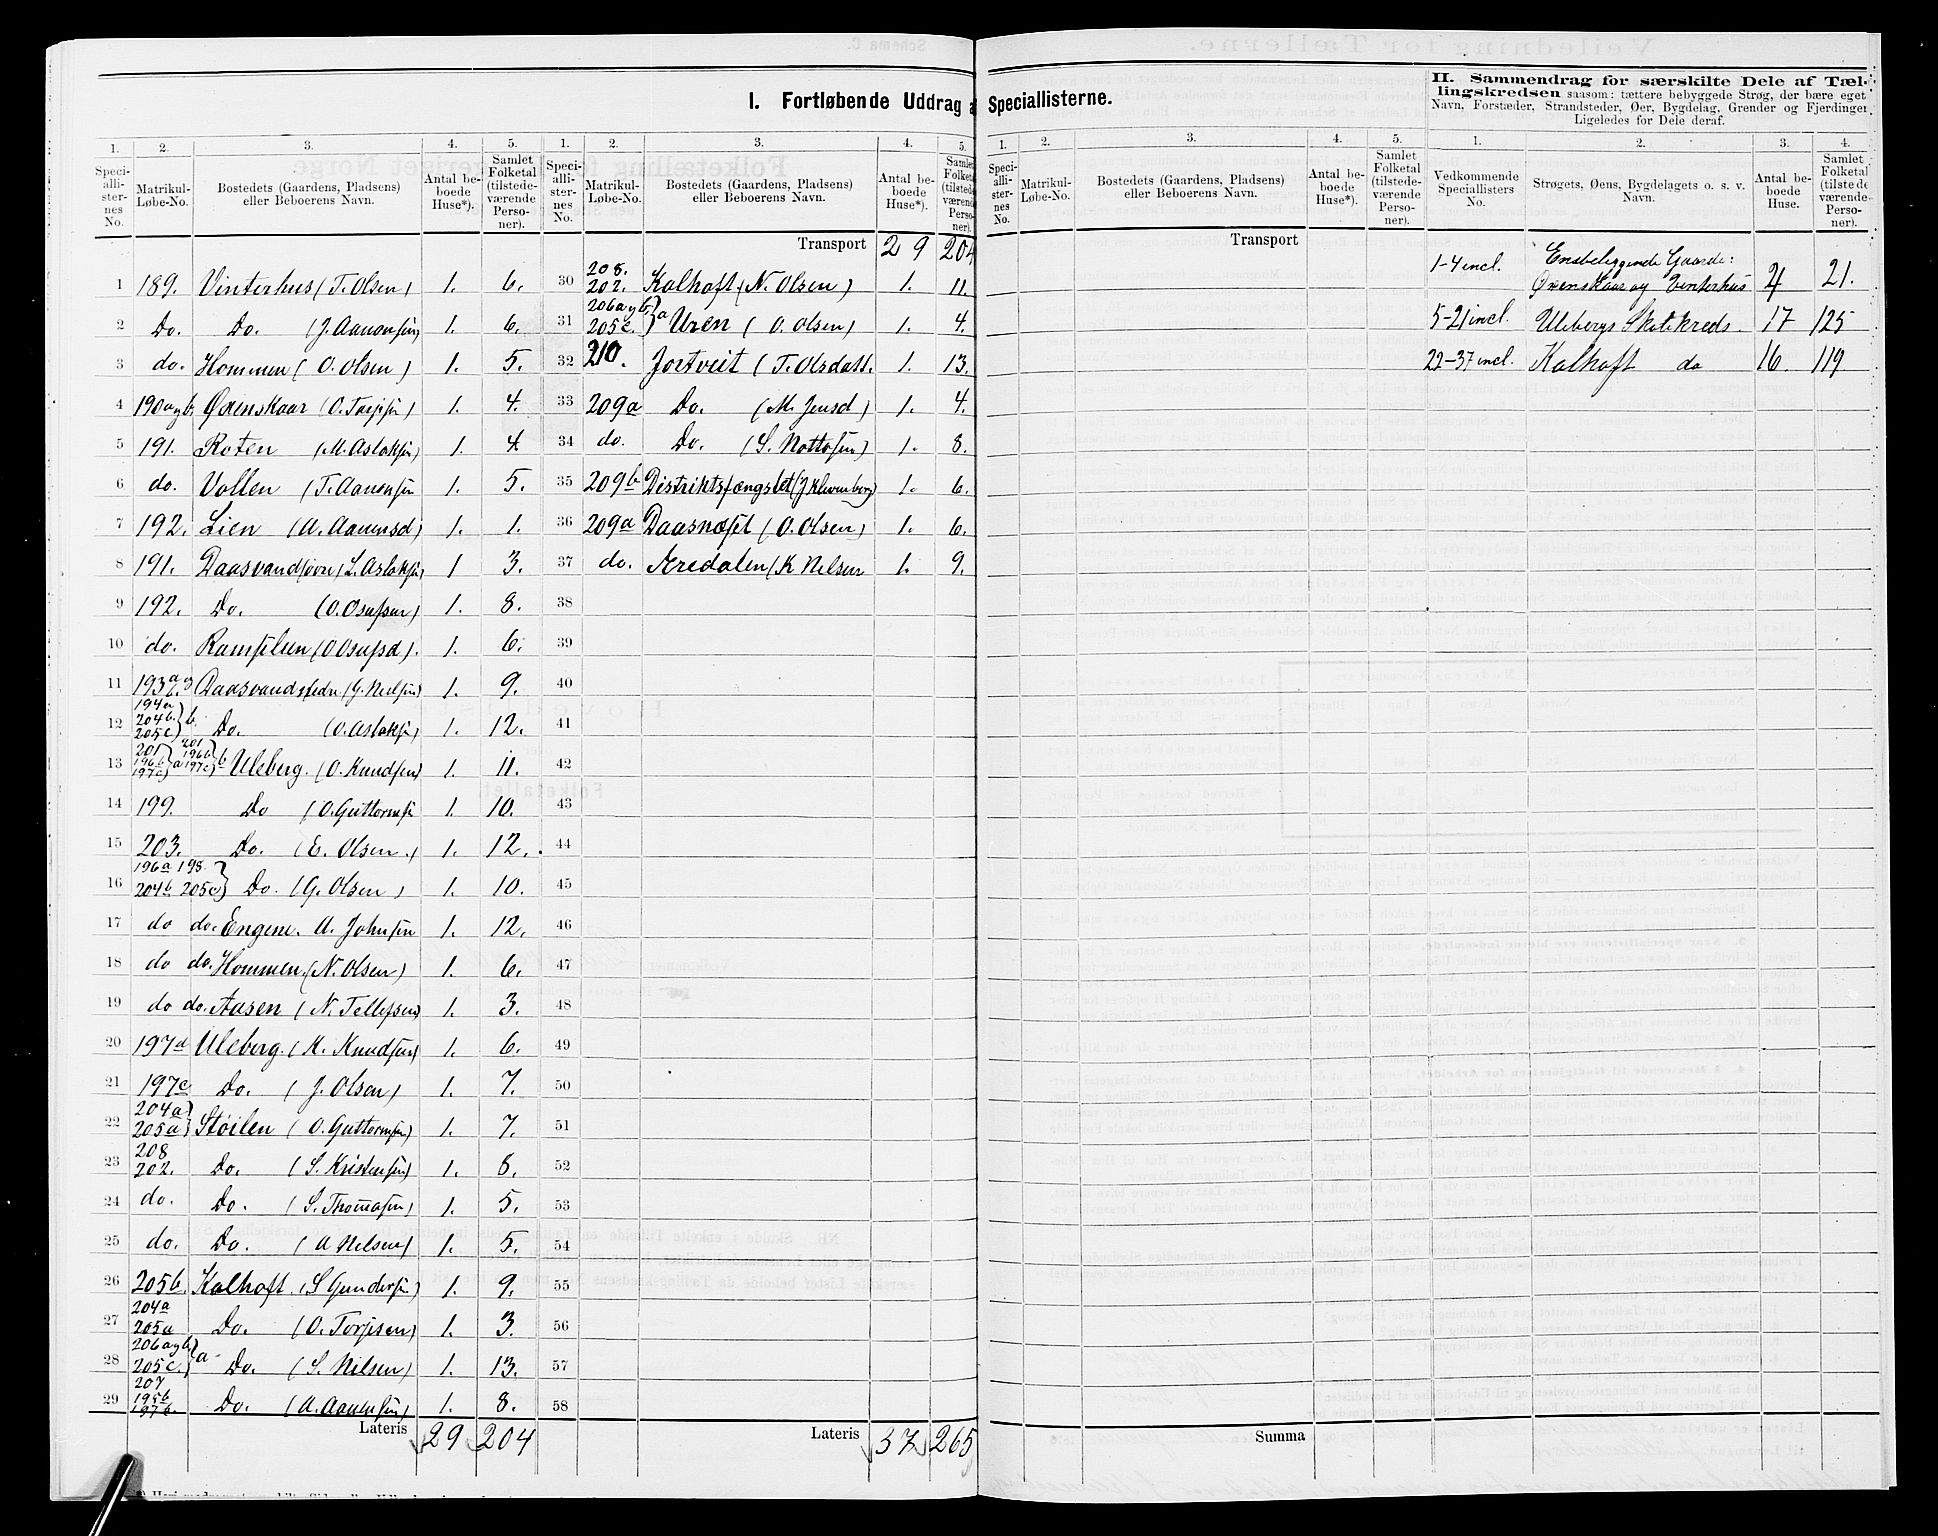 I. Fortløbende Uddrag a Speciallisterne.
II. Sammendrag for særskilte Dele af Tællingskredsen saasom: tættere bebyggede Strøg, der bære eget
Navn, Forstæder, Strandsteder, Øer, Bygdelag, Grender og Fjerdinger
Ligeledes for Dele deraf.
1. 2. 3. 4. 5. 1. 2. 3. 4. 5.
Speciallisternes No. Matrikul-Løbe-No. Bostedets (Gaardens, Pladsens) eller Beboerens Navn. Antal beboede Huse*). Samlet Folketal (tilstedeværende Personer).
Transport 29 204
1 189. Vinterhus (T. Olsen) 1. 6.
2 Do. Do. (J. Aanonsen) 1. 6.
3 do. Hommen (O. Olsen) 1. 5.
4 190 a og b Øxenskaar (O. Tarjesen) 1. 4.
5 191. Roten (M. Aslaksen) 1. 4
6 do. Vollen (T. Aanonsen 1. 5.
7 192. Lien (A. Aanensd) 1. 1.
8 191. Daasvand (L. Aslaksen) 1 3.
9 192. Do. (O. Osufsen) 1. 8.
10 do. (O Osufsd). 1. 6.
11 193 a og b. (G. Nielsen) 1. 9.
12 194a 204b. 205c) b. Do. (O. Aslaksen) 1. 12.
13 201 196b 197c) a 201 196b 197c) b Uleberg. (O. Knudsen) 1. 11.
14 199. Do (O. Guttormsen 1. 10.
15 203. Do. (E. Olsen.) 1. 12.
16 196a 198. 204b 205c} Do. (G. Olsen) 1. 10.
17 do do. Engene. A. Johnsen 1. 12.
18 do do. Hommen. (N. Olsen) 1. 6.
19 do do. Aasen (N. Tellefsen) 1. 3.
20 197d Uleberg. (K. Knudsen) 1. 6.
21 197c Do. (J. Olsen) 1. 7.
22 204a) 205a) Støilen (O. Guttormsen) 1. 7.
23 208 202. Do. (S. Kristensen) 1. 8.
24 do. Do. (S. Thomasen) 1. 5.
25 do. Do. (A Nilsen) 1. 5.
26 205b. Kalhoft. (S Gundersen) 1. 9.
27 204a 205a Do. (O. Torjsen) 1. 3.
28 206 a og b. 205c.} a Do. (S. Nilsen) 1. 13.
29 207 195b 197b. Do. (A. Aanensen) 1. 8.
Lateris 29 204
30 208. 202. Kalhoft (N. Olsen) 1. 11.
31 206 a og b. 205c.) a Uren (O. Olsen) 1. 4.
32 210. Jortveit (T. Olsdatt. 1. 13.
33 209a Do. (M. Jensd) 1. 4.
34 do. Do. (S. Nottosen) 1. 8.
35 209b Distriktsfængslet (J Klevenberg) 1. 6.
36 209a Daasnæset (O. Olsen) 1. 6.
37 do. (K Nilsen 1. 9.
38
39
40
41
42
43
44
45
46
47
48
49
50
51
52
53
54
55
56
57
58
Lateris 37 265
1. 2. 3. 4. 5.
Speciallisternes No. Matrikul-Løbe-No. Bostedets (Gaardens, Pladsens) eller Beboerens Navn. Antal beboede Huse*). Samlet Folketal (tilstedeværende Personer).
Transport
Summa
1. 2. 3. 4.
Vedkommende Speciallisters No. Strøgets, Øens, Bygdelagets o. s. v. Navn. Antal beboede Huse. Samlet Folketal (tilstedeværende Personer).
1-4 incl. Gaarde:
Øxenskaar og Vinterhus 4 21.
5-21 incl. Ulebergs Skolekreds. 17 125
22-37 incl. Kalhoft do 16. 119